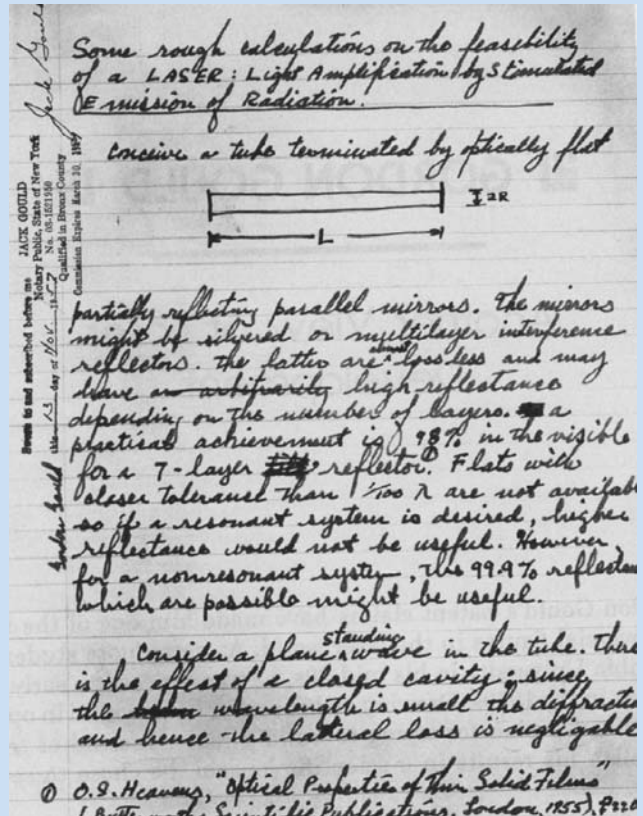 Some rough calculations on the feasibility
of a LASER: Light Amplification by Stimulated
Emission of Radiation.
conceive a tube terminated by optically flat
2R
L
partially reflecting parallel mirrors. The mirrors
might be silvered or multilayer interference
reflectors. The latter are almost lossless and may
have an arbitrarily high reflectance
depending on the number of layers. a
practical achievement is 98% in the visible
for a 7-layer reflector.① Flats with
closer tolerance than 1/100 λ are not availabl
so if a resonant system is desired, higher
reflectance would not be useful. However,
for a nonresonant system, the 99.9% reflectan
which are possible might be useful.
Consider a plane standing wave in the tube. There
is the effect of a closed cavity; since
the wavelength is small the diffractio
and hence the lateral loss is negligable
① O.S. Heavens, "Optical Properties of Thin Solid Films"
(Butterworths Scientific Publications, London, 1955), p220
Jack Gould
JACK GOULD
Notary Public, State of New York
No. 03-1521950
Qualified in Bronx County
Commission Expires March 30, 1959
Sworn to and subscribed before me
this 13 day of Nov. 1957
Gordon Gould